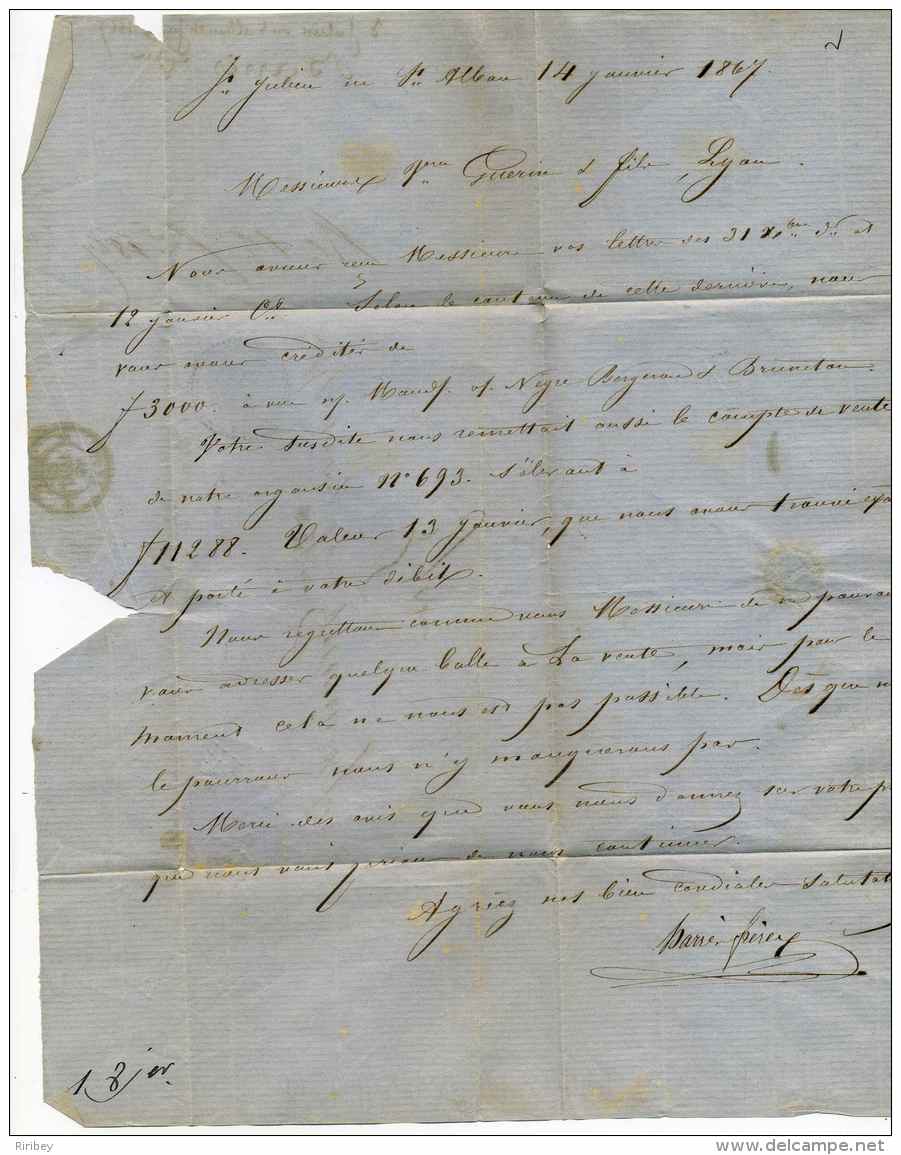 St Julien en St Alban 14 janvier 1867.
Messieurs Vve Guerin & fils, Lyon.
Nous avons recu Messieurs vos lettre des 31 Xbre dr et
12 janvier Ct. Selon le contenu de cette dernière, nous
vous avons créditer de
f 3000. à vue n/. Mand/. s/. Negre Bergeron & Bruneton.
Votre susdite nous remettait aussi le compte de vente
de notre organsin N° 693. s'élevant à
f 11288. Valeur 13 janvier, que nous avons trouvé exa
et porté à votre débit.
Nous regrettons comme vous Messieurs de ne pouvoi
vous adresser quelque balle à La vente, mais pour le
moment cela ne nous est pas possible. Dès que n
le pourrons nous n'y manquerons pas.
Merci des avis que vous nous donnez sur votre p
que nous vous prions de nous continuer.
Agréez nos bien cordiales salutat
Barrès frères
18 jer.
Riribey
www.delcampe.net